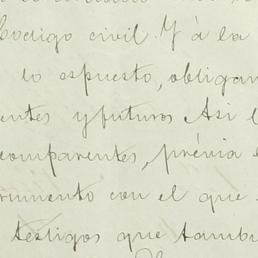 Codigo civil. Y á la
lo espuesto, obligan
entes y futuros Asi l
comparentes, prévia l
rumento con el que
testigos que tambi